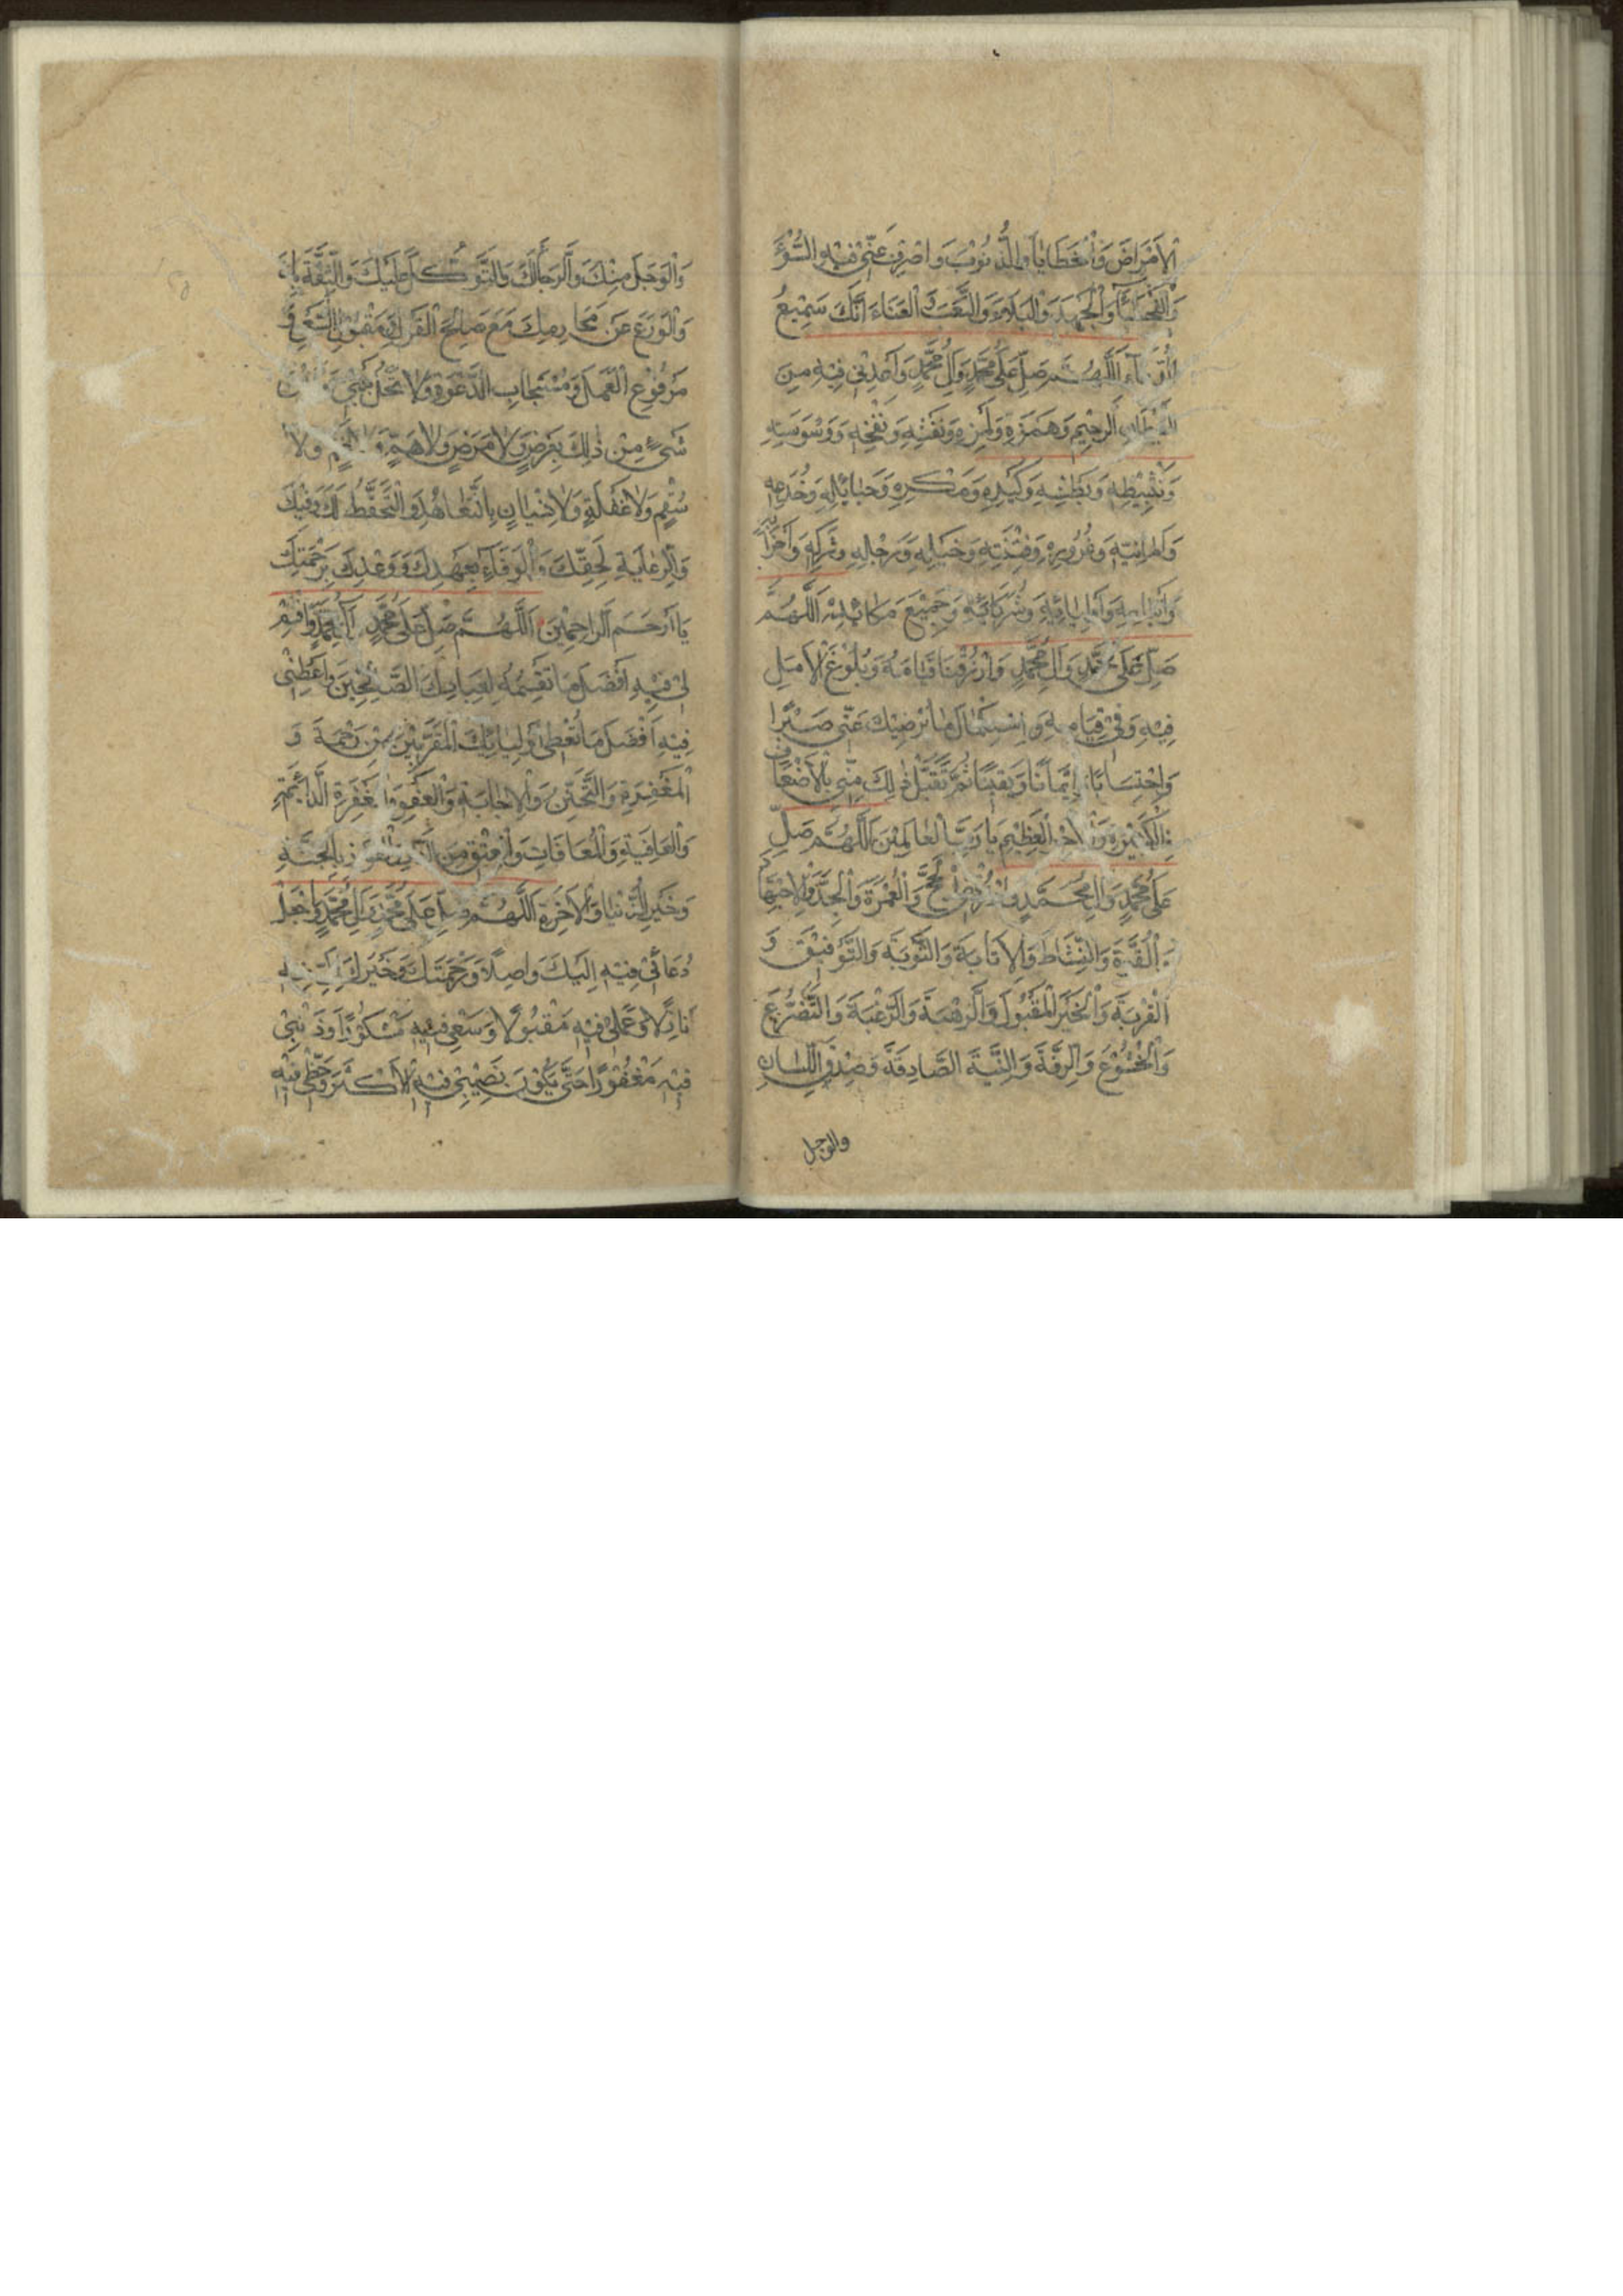 الْاَمْرَاضَ وَالْخَطَايَا وَالذُّنُوبَ وَاصْرِفْ عَنِّي فِيهِ السُّوْءَ
وَالْفَحْشَاءَ وَالْجَهْدَ وَالْبَلَاءَ وَالتَّعَبَ وَالْعَنَاءَ اِنَّكَ سَمِيْعُ
الدُّعَاءِ اَللّٰهُمَّ صَلِّ عَلٰى مُحَمَّدٍ وَاٰلِ مُحَمَّدٍ وَاَعِذْنِي فِيْهِ مِنَ
الشَّيْطَانِ الرَّجِيْمِ وَهَمْزِهِ وَلَمْزِهِ وَنَفْثِهِ وَنَفْخِهِ وَوَسْوَسَتِهِ
وَتَثْبِيْطِهِ وَبَطْشِهِ وَكَيْدِهِ وَمَكْرِهِ وَحَبَايِلِهِ وَخُدَعِهِ
وَاَمَانِيِّهِ وَغُرُوْرِهِ وَفِتْنَتِهِ وَخَيْلِهِ وَرِجَالِهِ وَشَرَكِهِ وَاَحْزَابِهِ
وَاَتْبَاعِهِ وَاَوْلِيَائِهِ وَشُرَكَائِهِ وَجَمِيْعَ مَكَائِدِهِ اَللّٰهُمَّ
صَلِّ عَلٰى مُحَمَّدٍ وَاٰلِ مُحَمَّدٍ وَارْزُقْنَا قِيَامَهُ وَبُلُوْغَ الْاَمَلِ
فِيْهِ وَفِيْ قِيَامِهِ وَاسْتِكْمَالَ مَا يُرْضِيْكَ عَنِّي صَبْرًا
وَاحْتِسَابًا وَاِيْمَانًا وَيَقِيْنًا ثُمَّ تَقَبَّلْ ذٰلِكَ مِنِّي بِالْاَضْعَافِ
الْكَثِيْرَةِ وَالْاَجْرِ الْعَظِيْمِ يَا رَبَّ الْعَالَمِيْنَ اَللّٰهُمَّ صَلِّ
عَلٰى مُحَمَّدٍ وَاٰلِ مُحَمَّدٍ وَارْزُقْنِي الْحَجَّ وَالْعُمْرَةَ وَالْجِدَّ وَالْاِجْتِهَادَ
وَالْقُوَّةَ وَالنِّشَاطَ وَالْاِنَابَةَ وَالتَّوْبَةَ وَالتَّوْفِيْقَ وَ
الْقُرْبَةَ وَالْخَيْرَ الْمَقْبُوْلَ وَالرَّهْبَةَ وَالرَّغْبَةَ وَالتَّضَرُّعَ
وَالْخُشُوْعَ وَالرِّقَّةَ وَالنِّيَّةَ الصَّادِقَةَ وَصِدْقَ اللِّسَانِ
والوجل
وَالْوَجَلَ مِنْكَ وَالرَّجَاءَ لَكَ وَالتَّوَكُّلَ عَلَيْكَ وَالثِّقَةَ بِكَ
وَالْوَرَعَ عَنْ مَحَارِمِكَ مَعَ صَالِحِ الْقَوْلِ وَمَقْبُوْلِ السَّعْيِ وَ
مَرْفُوْعِ الْعَمَلِ وَمُسْتَجَابِ الدَّعْوَةِ وَلَا تَحُلْ بَيْنِي وَبَيْنَ
شَيْءٍ مِنْ ذٰلِكَ بِعَرَضٍ وَلَا مَرَضٍ وَلَا هَمٍّ وَلَا غَمٍّ وَلَا
سُقْمٍ وَلَا غَفْلَةٍ وَلَا نِسْيَانٍ بَلْ بِالتَّعَاهُدِ وَالتَّحَفُّظِ لَكَ وَفِيْكَ
وَالرِّعَايَةِ لِحَقِّكَ وَالْوَفَاءِ بِعَهْدِكَ وَوَعْدِكَ بِرَحْمَتِكَ
يَا اَرْحَمَ الرَّاحِمِيْنَ اَللّٰهُمَّ صَلِّ عَلٰى مُحَمَّدٍ وَاٰلِ مُحَمَّدٍ وَاقْسِمْ
لِيْ فِيْهِ اَفْضَلَ مَا تَقْسِمُهُ لِعِبَادِكَ الصَّالِحِيْنَ وَاَعْطِنِي
فِيْهِ اَفْضَلَ مَا تُعْطِي اَوْلِيَائِكَ الْمُقَرَّبِيْنَ مِنَ الرَّحْمَةِ وَ
الْمَغْفِرَةِ وَالتَّحَنُّنِ وَالْاِجَابَةِ وَالْعَفْوِ وَالْمَغْفِرَةِ الدَّائِمَةِ
وَالْعَافِيَةِ وَالْمُعَافَاتِ وَالْعِتْقِ مِنَ النَّارِ وَالْفَوْزِ بِالْجَنَّةِ
وَخَيْرِ الدُّنْيَا وَالْاٰخِرَةِ اَللّٰهُمَّ صَلِّ عَلٰى مُحَمَّدٍ وَاٰلِ مُحَمَّدٍ وَاجْعَلْ
دُعَائِيْ فِيْهِ اِلَيْكَ وَاصِلًا وَرَحْمَتَكَ وَخَيْرَكَ اِلَيَّ فِيْهِ
نَازِلًا وَعَمَلِيْ فِيْهِ مَقْبُوْلًا وَسَعْيِي فِيْهِ مَشْكُوْرًا وَذَنْبِيْ
فِيْهِ مَغْفُوْرًا حَتّٰى يَكُوْنَ نَصِيْبِيْ فِيْهِ الْاَكْثَرَ وَحَظِّي فِيْهِ